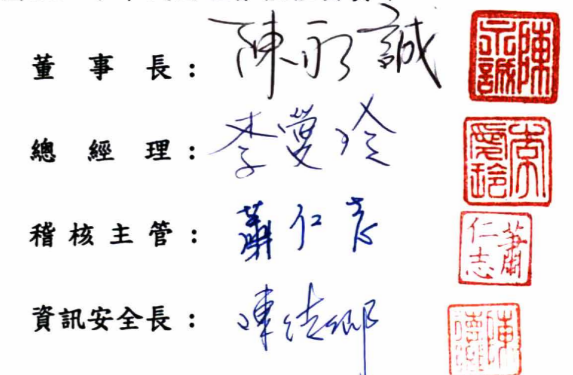 董事長：陳永誠 陳永誠
總經理：李愛玲
稽核主管：蕭仁志 蕭仁志
資訊安全長：陳